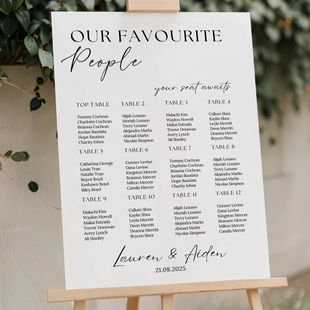 OUR FAVOURITE
People
your seat awaits
TOP TABLE
Tommy Cochran
Charlotte Cochran
Brianna Cochran
Jordan Bautista
Hope Bautista
Charity Johns
TABLE 2
Alijah Lozano
Moriah Lozano
Terry Lozano
Alejandra Marks
Ahmad Marks
Nicolas Simpson
TABLE 3
Malachi Kim
Waylon Howell
Makai Estrada
Trevor Donovan
Avery Lynch
Ali Stanley
TABLE 4
Callum Shea
Kaylin Shea
Leyla Merritt
Deon Merritt
Deanna Shea
Brycen Shea
TABLE 5
Catherine George
Louis Tran
Natalie Tran
Bryce Boyd
Keshawn Boyd
Riley Boyd
TABLE 6
Gunner Levine
Dana Levine
Kingston Mercer
Branson Mercer
Milton Mercer
Camila Mercer
TABLE 7
Tommy Cochran
Charlotte Cochran
Brianna Cochran
Jordan Bautista
Hope Bautista
Charity Johns
TABLE 8
Alijah Lozano
Moriah Lozano
Terry Lozano
Alejandra Marks
Ahmad Marks
Nicolas Simpson
TABLE 9
Malachi Kim
Waylon Howell
Makai Estrada
Trevor Donovan
Avery Lynch
Ali Stanley
TABLE 10
Callum Shea
Kaylin Shea
Leyla Merritt
Deon Merritt
Deanna Shea
Brycen Shea
TABLE 11
TABLE 12
Gunner Levine
Dana Levine
Kingston Mercer
Branson Mercer
Milton Mercer
Camila Mercer
Lauren & Aiden
21.08.2025